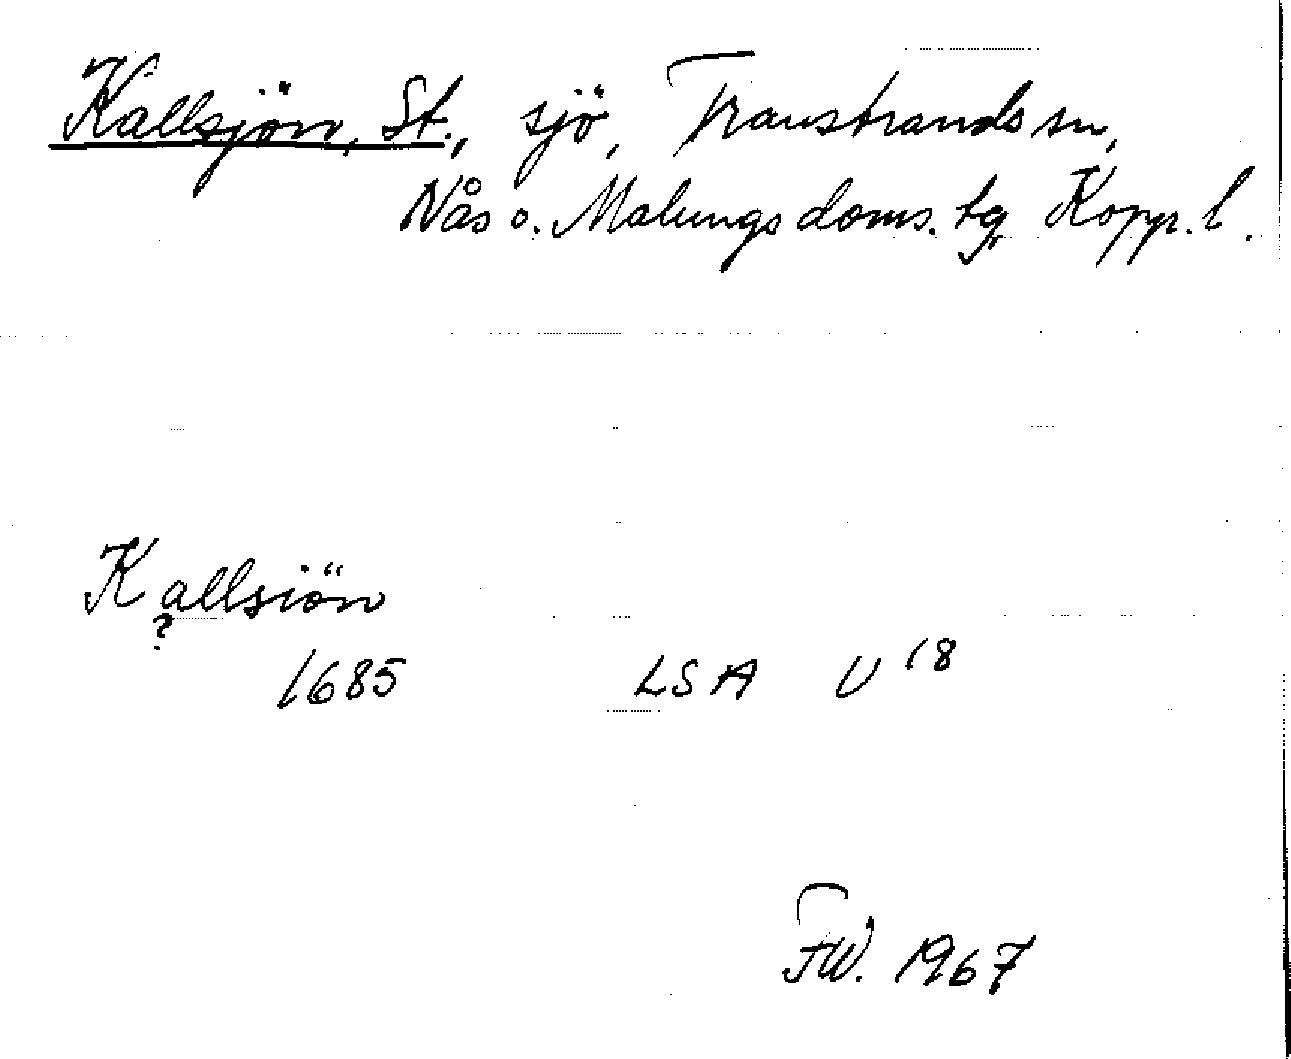 Kallsjön, St., sjö, Transtrands sn,
Nås o. Malungs doms. tg, Kopp. l.
Kallsiön
?
1685 LSA U 18
FW. 1967